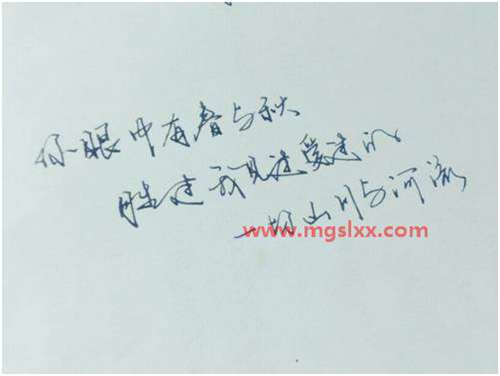 你眼中有春与秋
胜过我见过爱过的
一切山川与河流
www.mgslxx.com